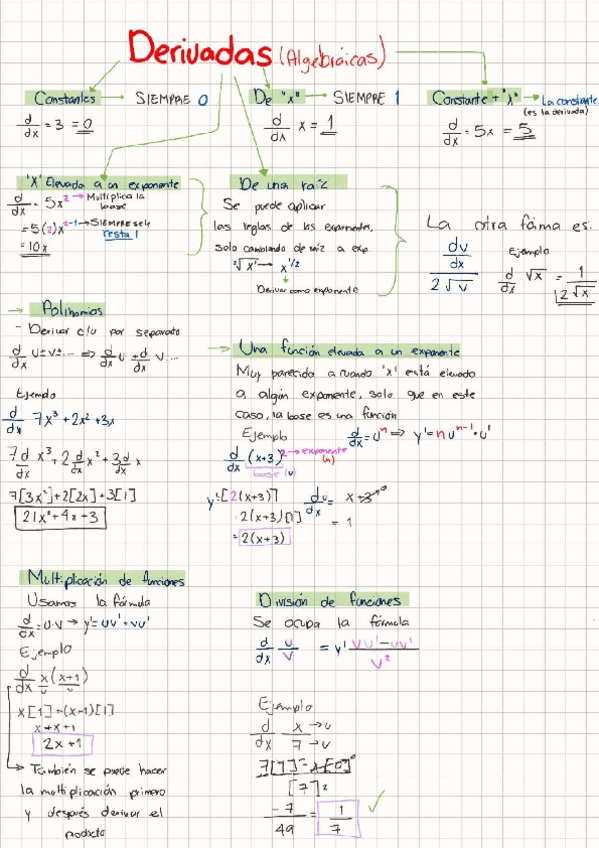 Derivadas (Algebráicas)
Constantes → SIEMPRE 0
d/dx = 3 = 0
De "x" → SIEMPRE 1
d/dx x = 1
Constante + "x" → La constante
(es la derivada)
d/dx = 5x = 5
"X" Elevada a un exponente
d/dx = 5x² → Multiplica la base
= 5(2)x²⁻¹ → SIEMPRE se le resta 1
= 10x
De una raíz
Se puede aplicar
las reglas de los exponentes,
solo cambiando de raíz a exp
²√x → x^1/2
Derivar como exponente
La otra forma es:
dv/dx / 2√v
Ejemplo
d/dx √x = 1/2√x
→ Polinomios
- Derivar c/u por separado
d/dx u=v=... => d/dx u + d/dx v ...
Ejemplo
d/dx 7x³ + 2x² + 3x
7 d/dx x³ + 2 d/dx x² + 3 d/dx x
7[3x²]+2[2x]+3[1]
21x²+4x+3
→ Una función elevada a un exponente
Muy parecida a cuando 'x' está elevado
a algún exponente, solo que en este
caso, la base es una función
Ejemplo
d/dx = uⁿ => y' = n uⁿ⁻¹ · u'
d/dx (x+3)² → exponente (n)
base (u)
y'=[2(x+3)] du/dx = x+3 0
·2(x+3)[1] = 1
=2(x+3)
Multiplicación de funciones
Usamos la fórmula
d/dx = u·v → y' = uv' + vu'
Ejemplo
d/dx x(x+1)
u v
x[1]+(x+1)[1]
x+x+1
2x+1
→ También se puede hacer
la multiplicación primero
y después derivar el
producto
División de funciones
Se ocupa la fórmula
d/dx u/v = y' vu'-uv'/v²
Ejemplo
d/dx x → u / 7 → v
7[1] - x[0] 0
[7]²
-7/49 = 1/7 ✓